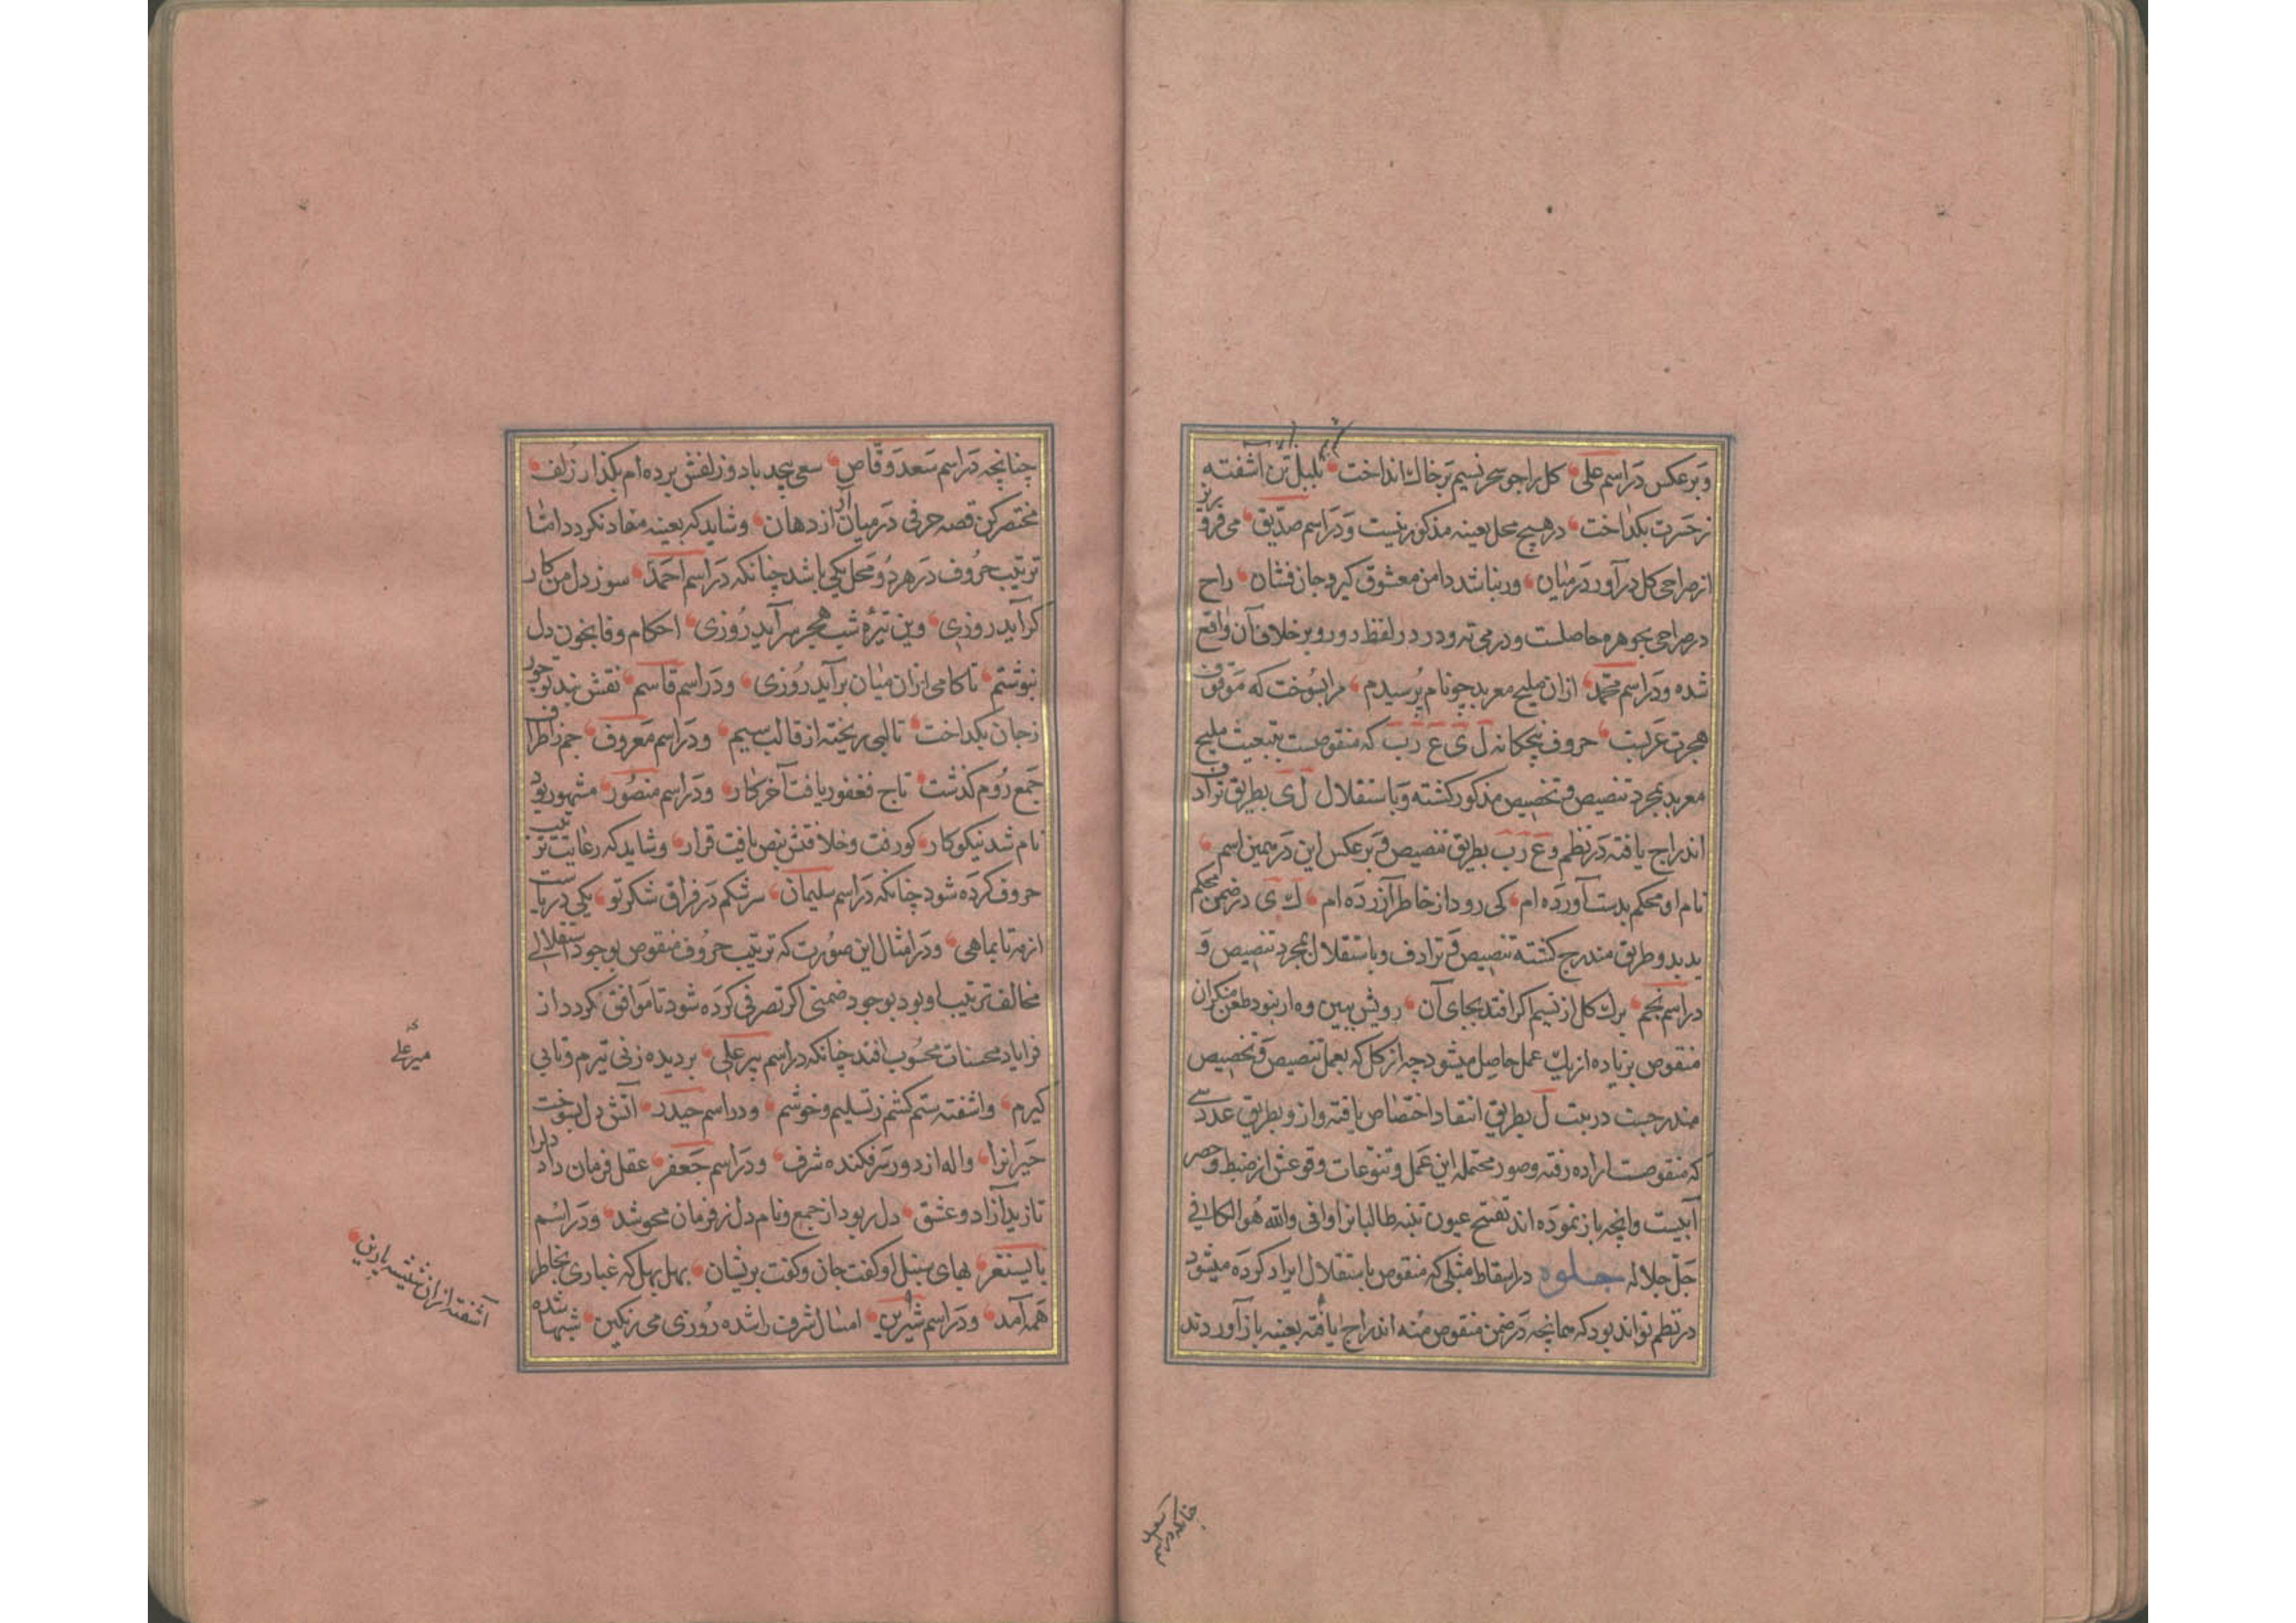 وبرعکس دراسم علی کل راجو سحر نسیم برخاك انداخت بلبل تن اشفته
زحسرت بکداخت درهیچ محل بعینه مذکور نیست ودراسم صدیق می فرو ریز
ازصراحی کل درآور درمیان ورنباشد دامن معشوق کیر وجان فشان راح
درصراحی بجوهره حاصلست ودرمی ته ودرد درلفظ دور وبرخلاف آن واقع
شده ودراسم محمد ازان ملیح معربد چونام پرسیدم مرابسوخت که موقوف
هجرت عربیت حروف پنجکانه ل ی ع ر ب که منقوصست بتبعیت ملیح
معربد بمجرد تنصیص وتخصیص مذکور کشته وباستقلال ل ی بطریق ترادف
اندراج یافته درنظم وع ر ب بطریق تنصیص وبرعکس این درهمین اسم
نام او محکم بدست آورده ام کی رود ازخاطر آزرده ام ك ی درضمن محکم
بدید وطریق مندرج کشته تنصیص وترادف وباستقلال بمجرد تنصیص و
دراسم نجم برك کل ازنسیم اکر افتد بجای آن رویش ببین وه ارنبود طعن منکران
منقوص بزیاده ازیك عمل حاصل میشود چه ازکل که بعمل تنصیص وتخصیص
مندرجست دربیت ل بطریق انتقاد اختصاص یافته واز و بطریق عددسے
که منقوصست اراده رفته وصور محتمله این عمل وتنوعات وقوعش ازضبط وحصر
آبیست وانچه باز نموده اند تفتیح عیون تنبه طالبانرا وافی والله هو الکافی
جل جلاله جلوه دراسقاط مثلی که منقوص باستقلال ایراد کرده میشود
درنظم تواند بود که همانچه درضمن منقوص منه اندراج یافته بعینه باز آوردند
چنانکه در اسم
چنانچه دراسم سعد وقاص سعی پیچد باد وزلفش برده ام بکذار زلف
مختصر کن قصه حرفی درمیان آر ازدهان وشاید که بعینه معاد نکردد اما
ترتیب حروف درهر دو محل یکی باشد چنانکه دراسم احمد سوز دل من کار
کر آید روزی وین تیره شب هجر سرآید روزی احکام وفا بخون دل
نبوشتم تاکامی ازان میان برآید روزی ودراسم قاسم نقش بند توچو
زجان بکداخت تالبی ریخته ازقالب سیم ودراسم معروف جم زاطراف
جمع روم کذشت تاج فغفور یافت آخرکار ودراسم منصور مشهور بود
نام شد نیکوکار کورفت وخلافتش بنص یافت قرار وشاید که رعایت ترتیب
حروف کرده شود چنانکه دراسم سلیمان سرشکم درفراق شکر تو یکی دریاست
ازمه تابماهی ودرامثال این صورت که ترتیب حروف منقوص بوجود استقلالے
مخالف ترتیب او بود بوجود ضمنی اکر تصرفی کرده شود تاموافق کردد از
فرایاد محسنات محسوب افتد چنانکه دراسم پیرعلی بردیده زنی تیرم وتابی
کیرم واشفته ستم کشم زتسلیم وخوشم ودراسم حیدر آتش دل بسوخت
حیرانرا واله ازدور سرفکنده شرف ودراسم جعفر عقل فرمان داد دلرا
تازید آزاد وعشق دل ربود ازجمع ونام دل زفرمان محو شد ودراسم
بایسنغر بهای سنبل اوکفت جان وکفت برنشان بهل بهل که غباری بخاطر
همه آمد ودراسم شیرین امسال شرف راشده روزی می رنکین شبها شده
میرعلے
آشفته ازان شیشه پارین